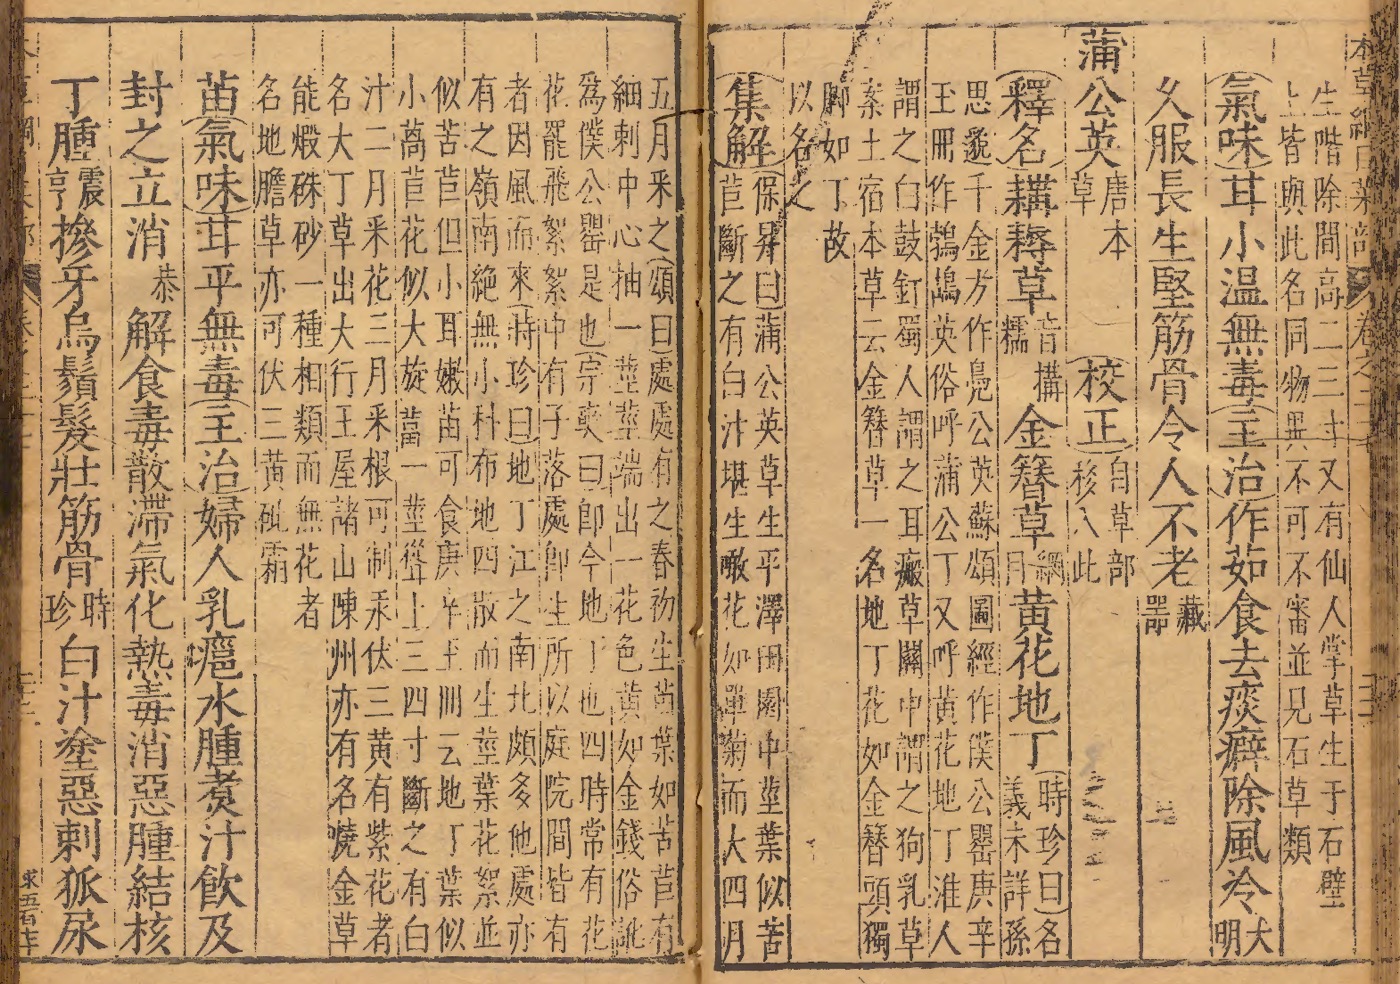 本草綱目菜部 卷之二十七
生階除間高二三寸又有仙人掌草生于石壁
上皆與此名同物異不可不審並見石草類
氣味甘小温無毒主治作茹食去痰癖除風冷大明
久服長生堅筋骨令人不老藏器
蒲公英唐本草 校正自草部移入此
釋名耩耨草音搆糯 金簪草綱目 黄花地丁時珍曰名義未詳孫
思邈千金方作鳧公英蘇頌圖經作僕公罌庚辛
玉冊作鵓鴣英俗呼蒲公丁又呼黄花地丁淮人
謂之白鼓釘蜀人謂之耳瘢草關中謂之狗乳草
案土宿本草云金簪草一名地丁花如金簪頭獨
脚如丁故
以名之
集解保昇曰蒲公英草生平澤田園中莖葉似苦
苣斷之有白汁堪生噉花如單菊而大四月
五月釆之頌曰處處有之春初生苗葉如苦苣有
細刺中心抽一莖莖端出一花色黄如金錢俗訛
爲僕公罌是也宗奭曰即今地丁也四時常有花
花罷飛絮絮中有子落處即生所以庭院間皆有
者因風而來時珍曰地丁江之南北頗多他處亦
有之嶺南絶無小科布地四散而生莖葉花絮並
似苦苣但小耳嫩苗可食庚辛玉冊云地丁葉似
小萵苣花似大旋葍一莖聳上三四寸斷之有白
汁二月釆花三月釆根可制汞伏三黄有紫花者
名大丁草出大行王屋諸山陳州亦有名燒金草
能煅硃砂一種相類而無花者
名地膽草亦可伏三黄砒霜
苗氣味甘平無毒主治婦人乳癰水腫煮汁飲及
封之立消恭 解食毒散滯氣化熱毒消惡腫結核
丁腫震亨 摻牙烏鬚髮壯筋骨時珍 白汁塗惡刺狐尿